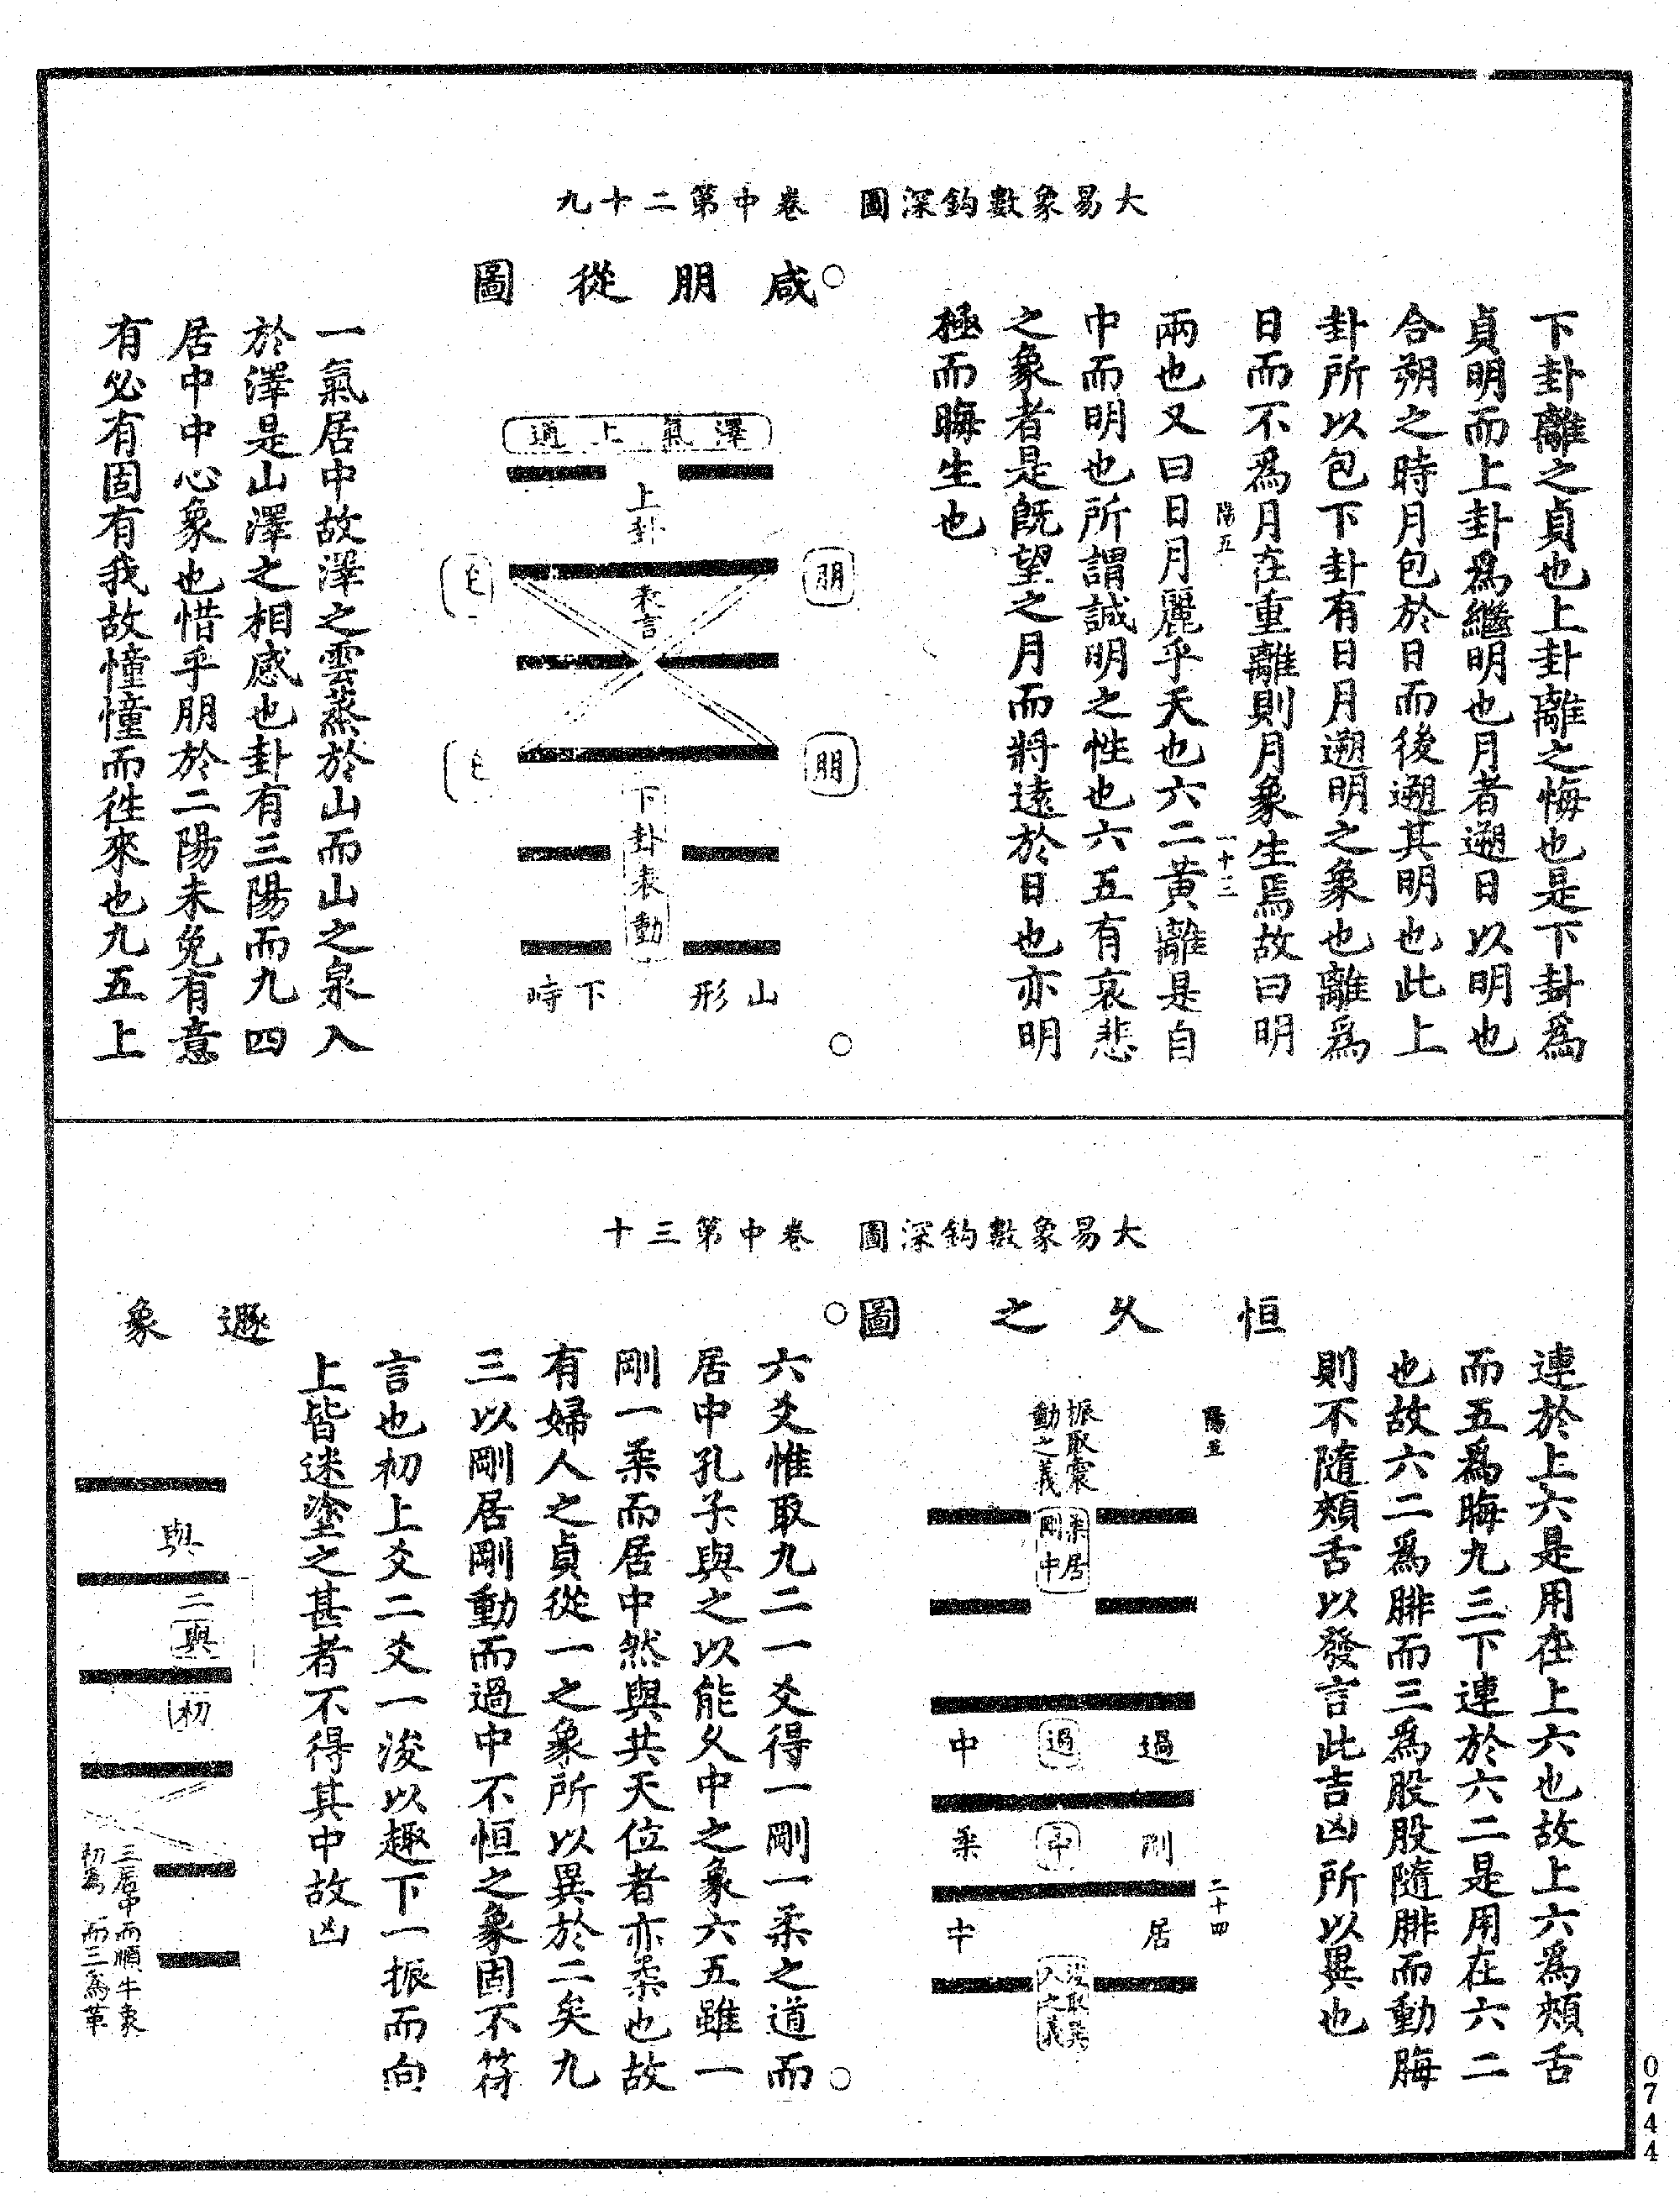 大易象數鈎深圖　卷中第二十九
下卦離之貞也上卦離之悔也是下卦爲
貞明而上卦爲繼明也月者遡日以明也
合朔之時月包於日而後遡其明也此上
卦所以包下卦有日月遡明之象也離爲
日而不爲月在重離則月象生焉故曰明
陽五
一十二
兩也又曰日月麗乎天也六二黃離是自
中而明也所謂誠明之性也六五有哀悲
之象者是旣望之月而將遠於日也亦明
極而晦生也
咸朋從圖
澤氣上通
上卦
朋
朋
下卦表動
山形
下峙
一氣居中故澤之雲蒸於山而山之泉入
於澤是山澤之相感也卦有三陽而九四
居中中心象也惜乎朋於二陽未免有意
有必有固有我故憧憧而徃來也九五上
大易象數鈎深圖　卷中第三十
連於上六是用在上六也故上六爲頰舌
而五爲脢九三下連於六二是用在六二
也故六二爲腓而三爲股股隨腓而動脢
則不隨頰舌以發言此吉凶所以異也
陽五
二十四
恒久之圖
振取震
動之義
柔居
剛中
過
過
中
剛
中
柔
居
中
浚取巽
入之義
六爻惟取九二一爻得一剛一柔之道而
居中孔子與之以能久中之象六五雖一
剛一柔而居中然與共天位者亦柔也故
有婦人之貞從一之象所以異於二矣九
三以剛居剛動而過中不恒之象固不符
言也初上爻二爻一浚以趣下一振而向
上皆迷塗之甚者不得其中故凶
遯象
與
二與
初
三居中而順牛象
初爲
而三爲革
0744